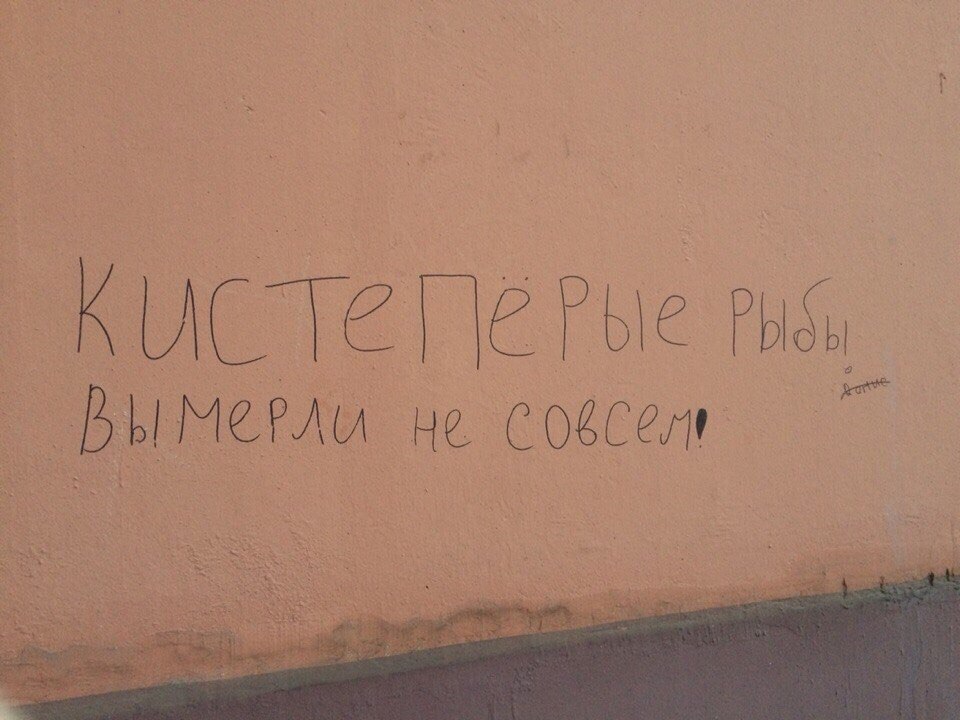 Кистепёрые рыбы
Вымерли не совсем!